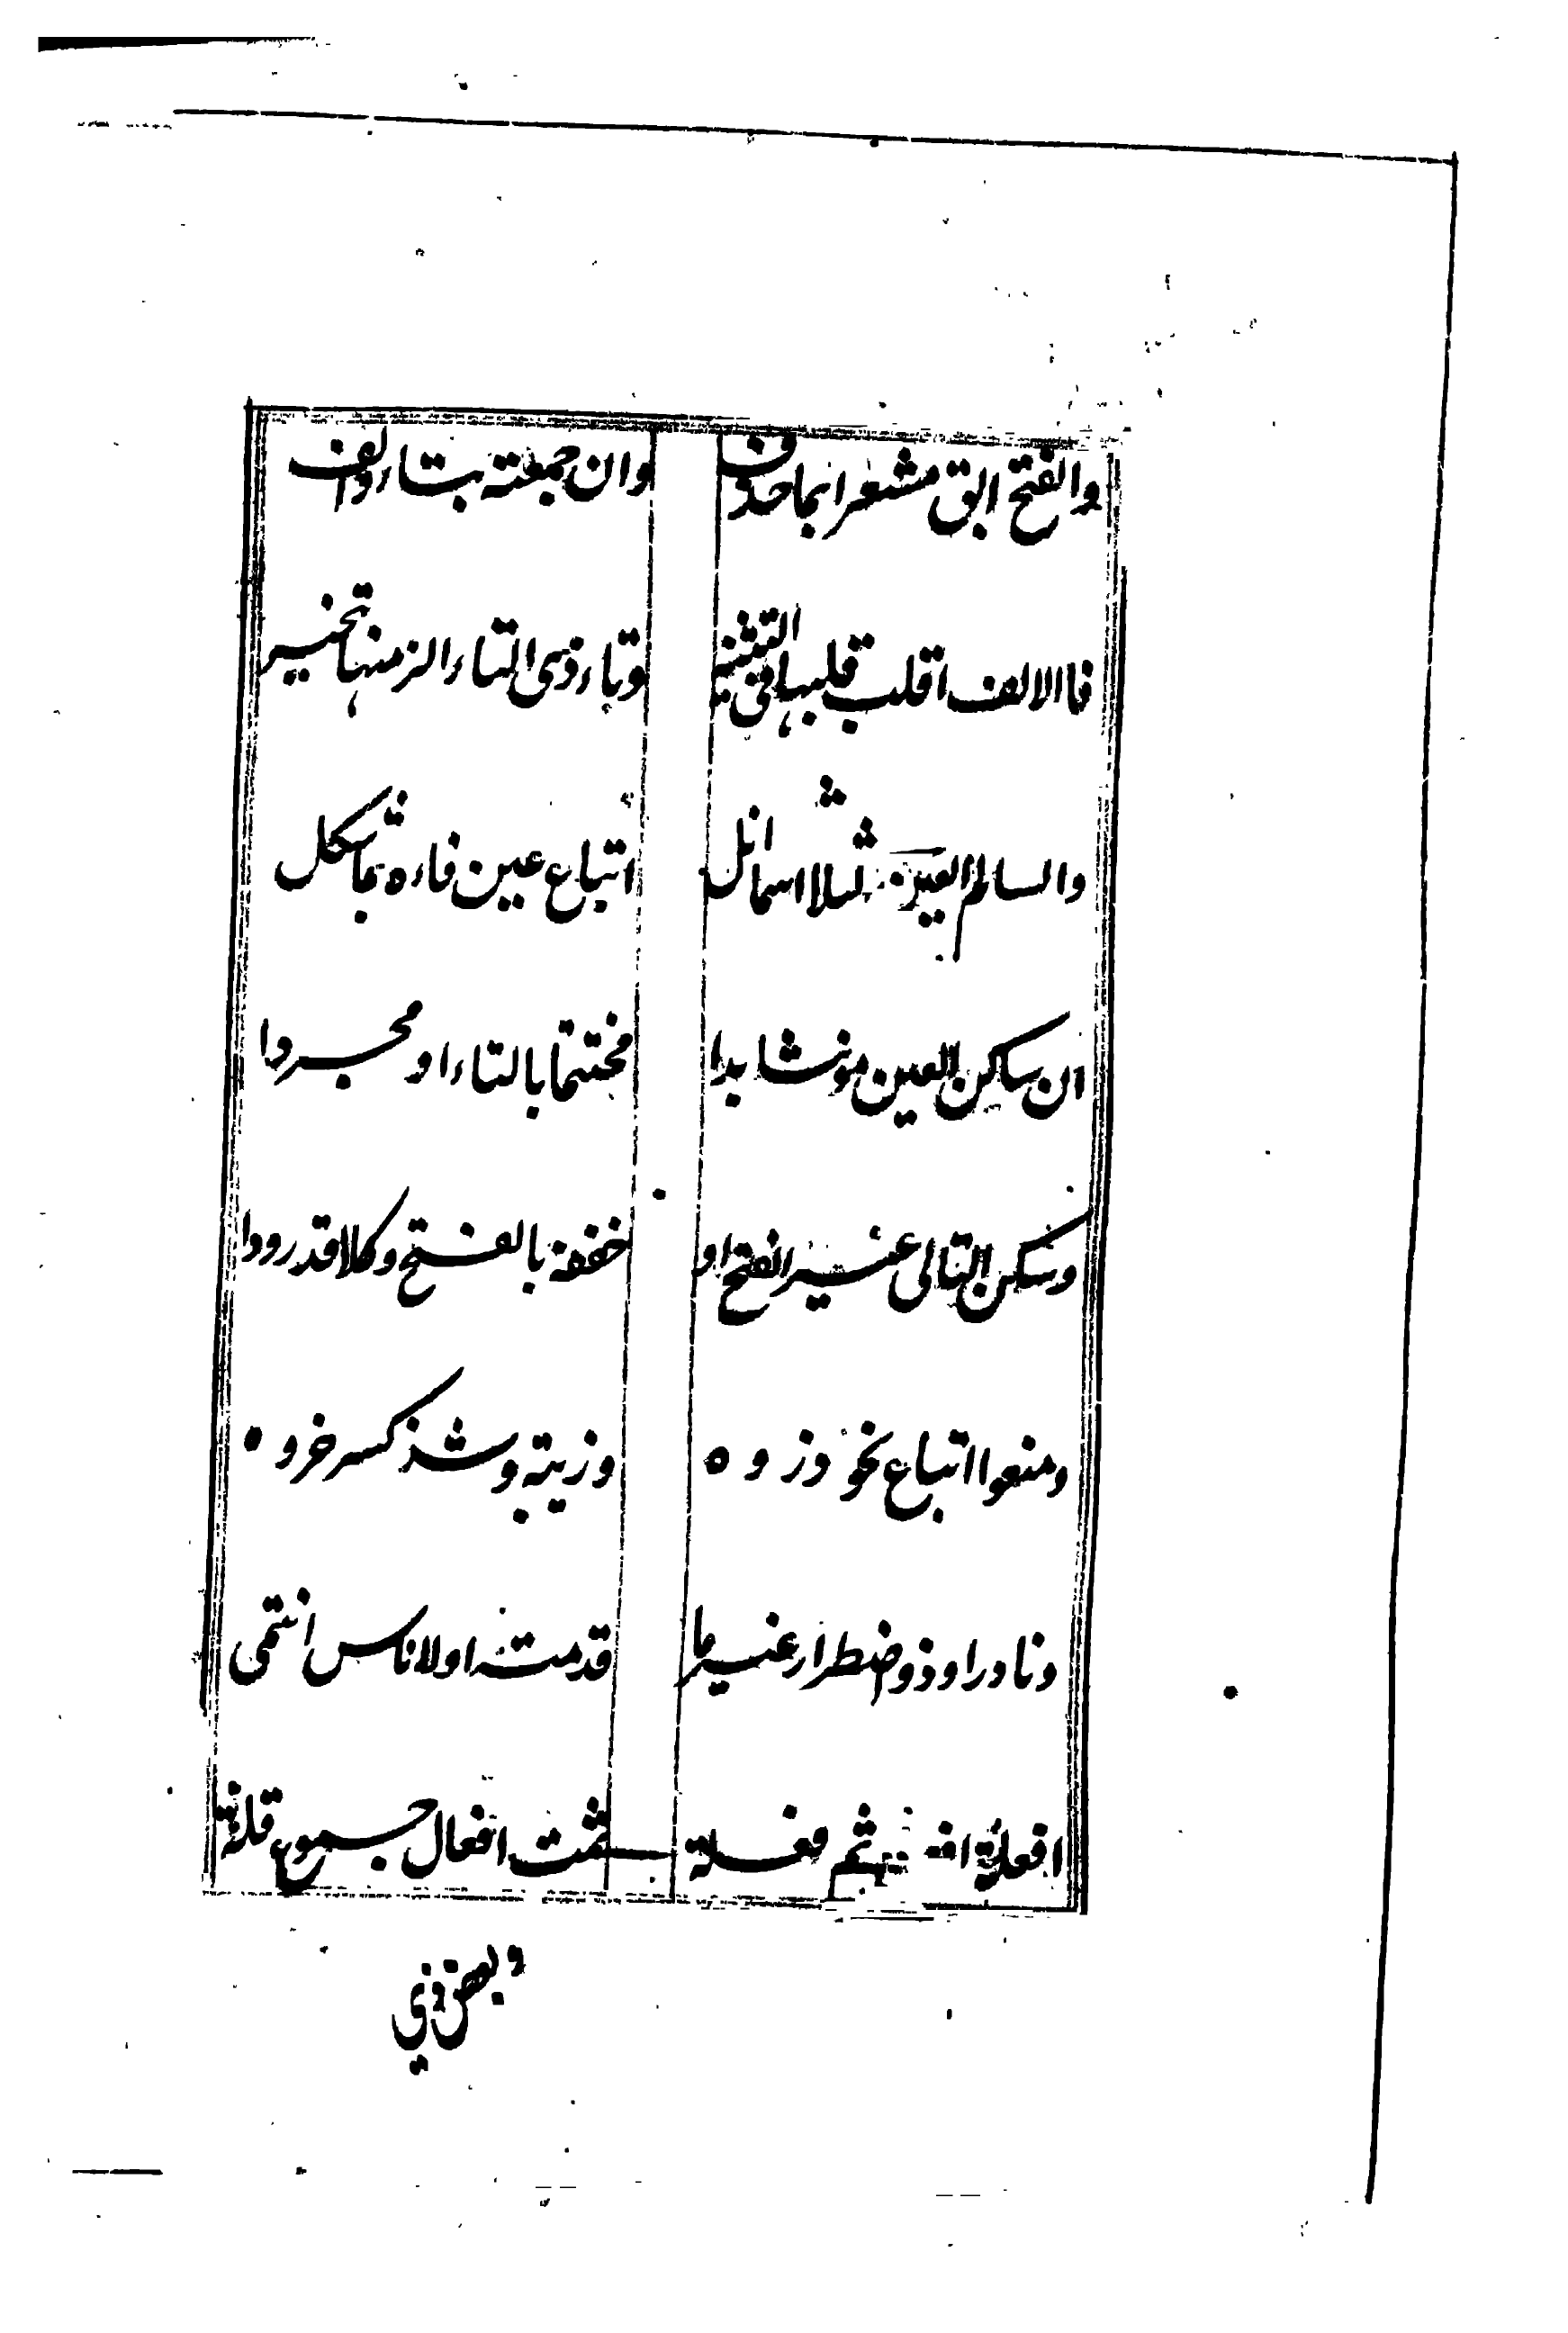 والفتح ابق مشعرا بما حذف وان جمعته بتاء والف
فاالالف اقلب قلبها فى التثنيه وتاء ذى التاء الزمنها تخير
والسالم العين ثلاثا اسما انل اتباع عين فاءه بما شكل
ان ساكن العين مونثا بدا مختتما بالتاء او مجردا
وسكن التالى غير الفتح او خففه بالفتح وكلا قد رووا
ومنعوا اتباع نحو ذروه وزيته وشذ كسر جروه
ونادر اوذو اضطرار غير ما قدمته اولاناس انتمى
افعلة افعل ثم فعلة ثمت افعال جموع قلة
وبعض ذي